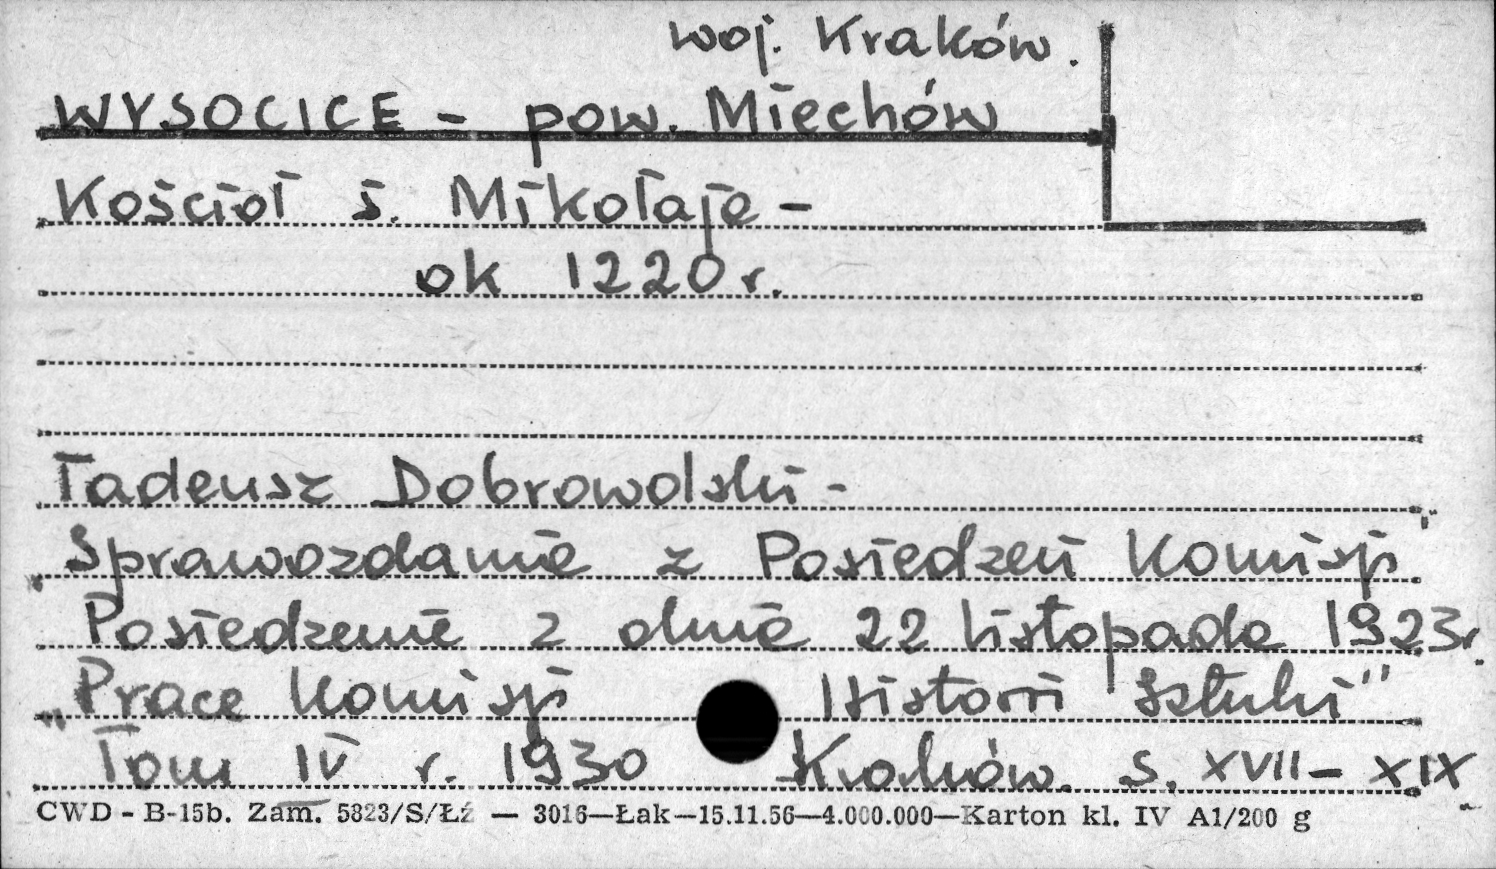 woj. Kraków.
WYSOCICE - pow. Miechów
Kościół ś. Mikołaja -
ok 1220 r.
Tadeusz Dobrowolski -
„Sprawozdanie z Posiedzeń Komisji"
Posiedzenie z dnia 22 listopada 1923r.
„Prace Komisji Historii Sztuki"
Tom IV r. 1930 Kraków. S. XVII - XIX
CWD - B-15b. Zam. 5823/S/Łź — 3016—Łak—15.11.56—4.000.000—Karton kl. IV A1/200 g